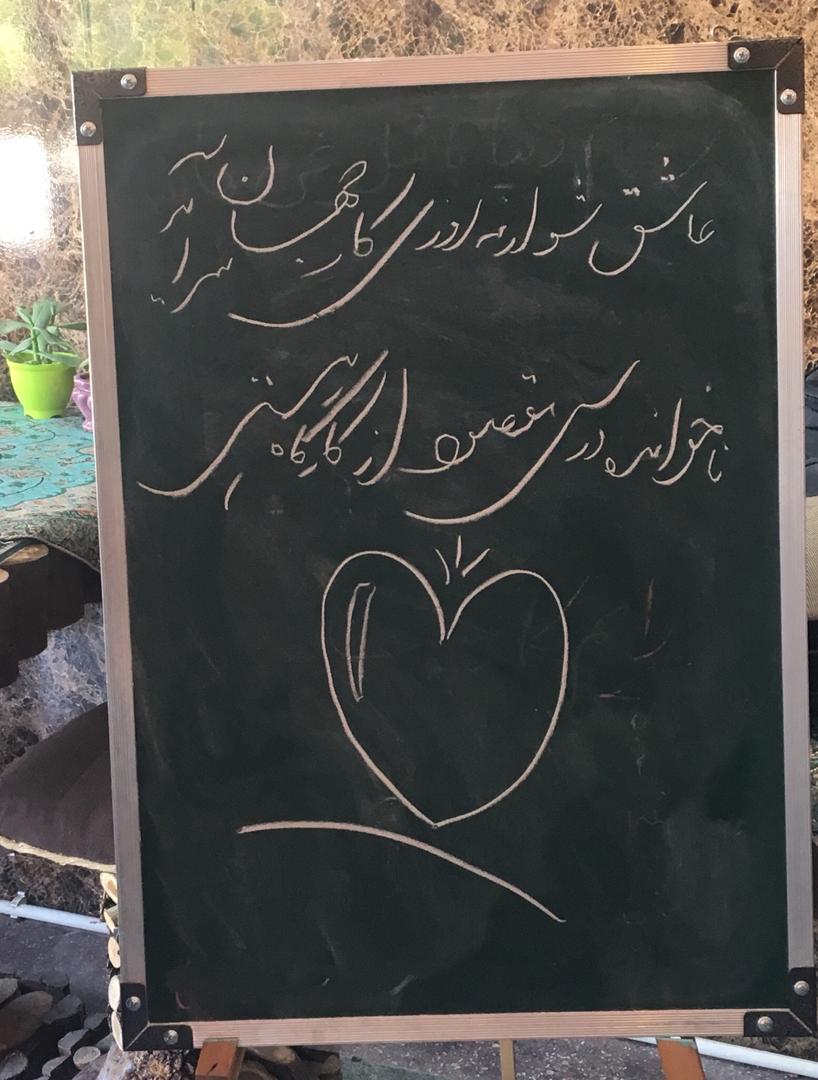 عاشق شو ارنه روزی کار جهان سر آید
ناخوانده درس مقصود از کارگاه هستی